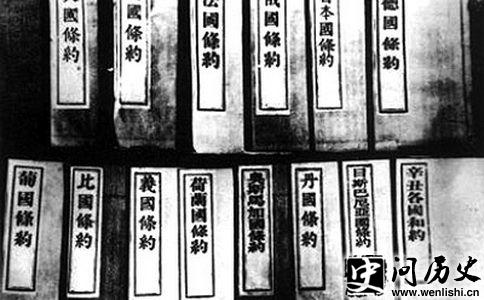 國條約
國條約
法國條約
俄國條約
本國條約
德國條約
葡國條約
比國條約
義國條約
荷蘭國條約
奧斯馬加國條約
丹國條約
日斯巴尼亞國條約
辛丑各國和約
史问历史
www.wenlishi.cn